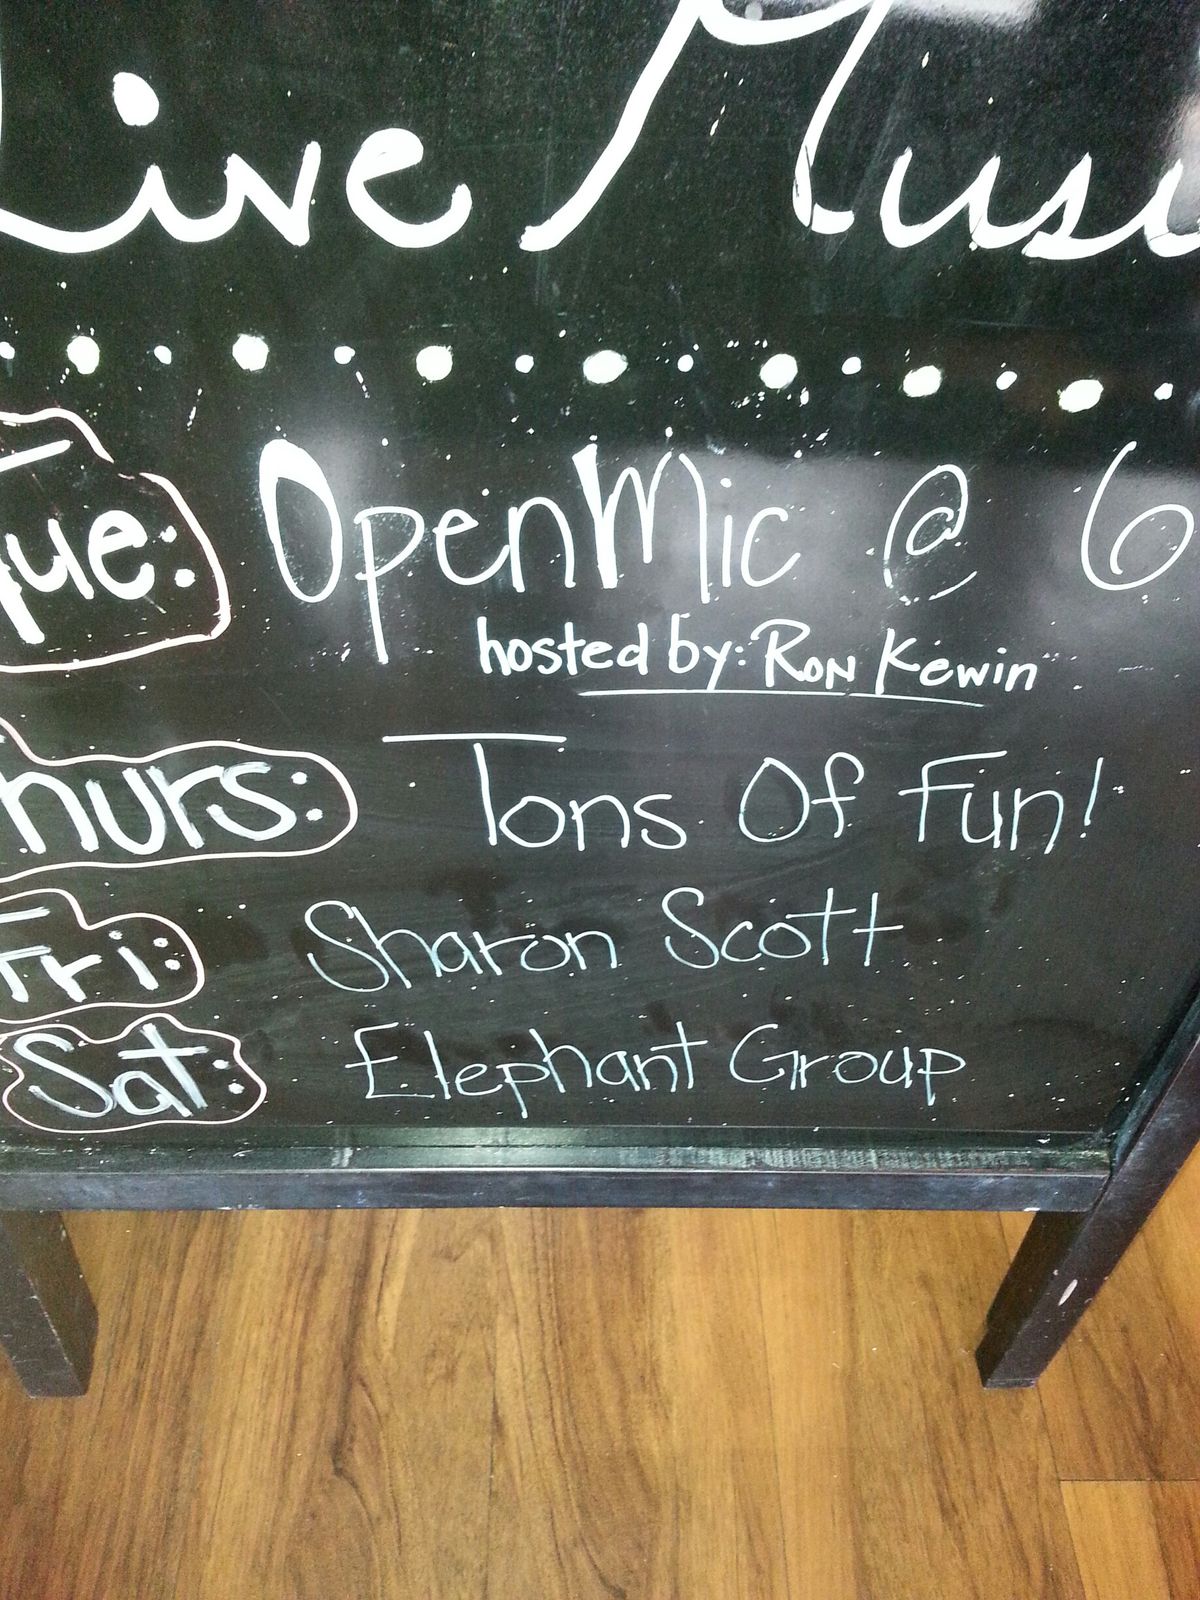 Live Musi
Tue: Open Mic @ 6
hosted by: Ron Kewin
hurs: Tons Of Fun!
Fri: Sharon Scott
Sat: Elephant Group